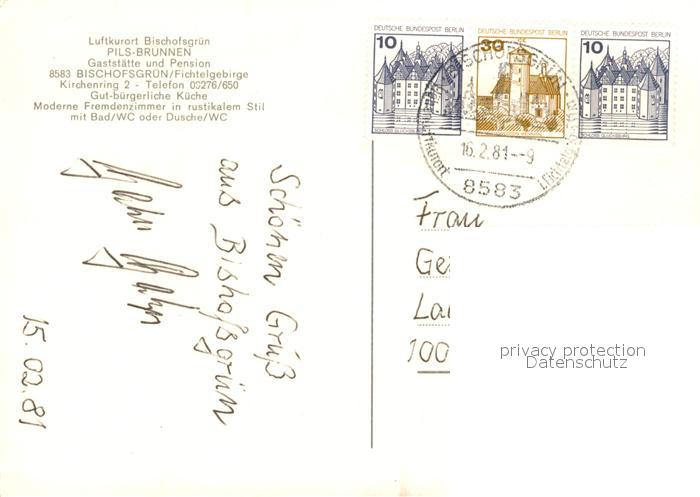 Luftkurort Bischofsgrün
PILS-BRUNNEN
Gaststätte und Pension
8583 BISCHOFSGRÜN/Fichtelgebirge
Kirchenring 2 - Telefon 09276/650
Gut-bürgerliche Küche
Moderne Fremdenzimmer in rustikalem Stil
mit Bad/WC oder Dusche/WC
DEUTSCHE BUNDESPOST BERLIN
10
DEUTSCHE BUNDESPOST BERLIN
30
DEUTSCHE BUNDESPOST BERLIN
10
SCHLOSS GLÜCKSBURG
SCHLOSS GLÜCKSBURG
BISCHOFSGRÜN
16.2.81--9
8583
Schönen Gruß
aus Bishofsgrün
15.02.81
Frau
Ge
La
100
privacy protection
Datenschutz